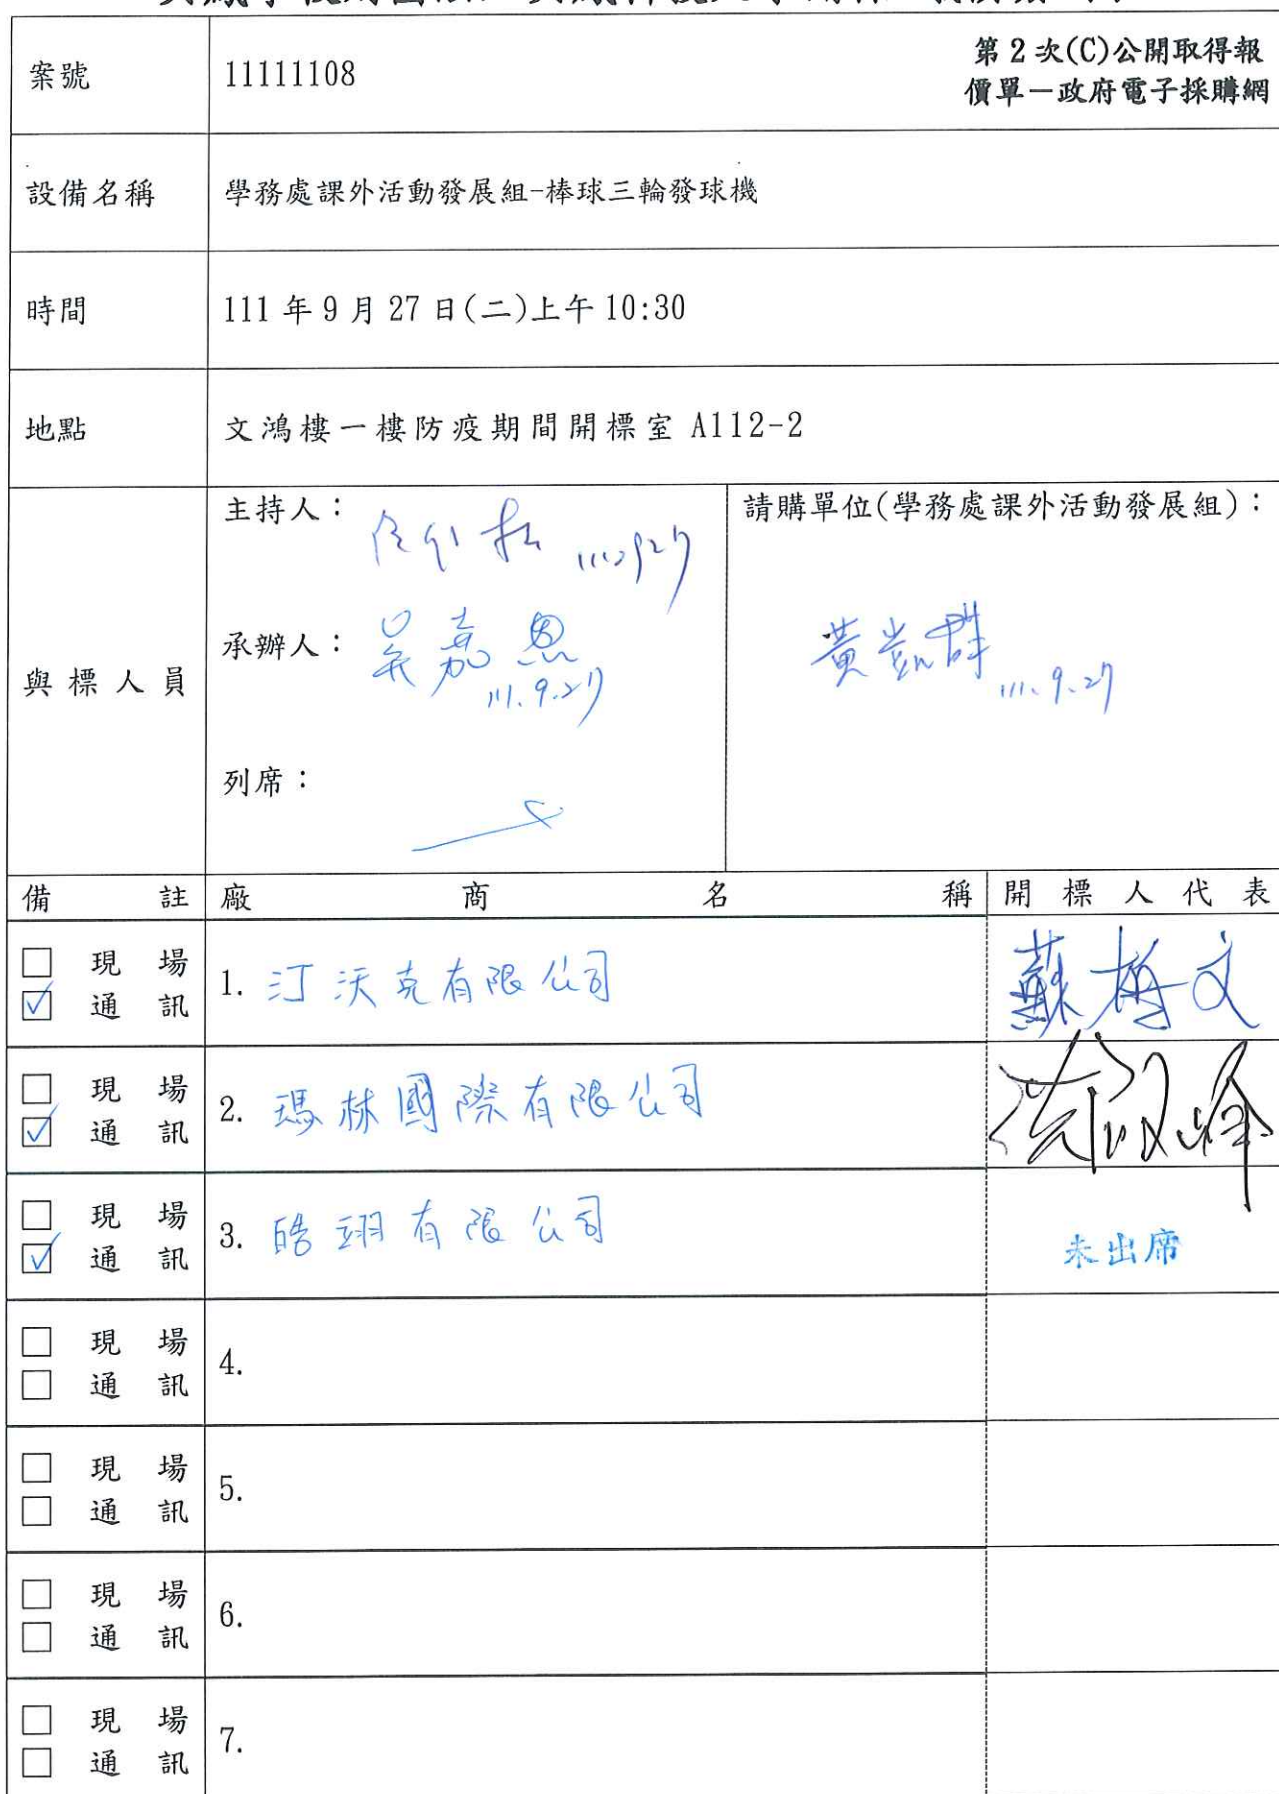 案號
11111108
第2次(C)公開取得報
價單－政府電子採購網
設備名稱
學務處課外活動發展組-棒球三輪發球機
時間
111年9月27日(二)上午10:30
地點
文鴻樓一樓防疫期間開標室 A112-2
與標人員
主持人：
承辦人：
吳嘉恩
111.9.27
列席：
請購單位(學務處課外活動發展組)：
黃凱群
111.9.27
備註 廠商名稱 開標人代表
□ 現場
☑ 通訊
1. 汀沃克有限公司
□ 現場
☑ 通訊
2. 瑪林國際有限公司
□ 現場
☑ 通訊
3. 皓翊有限公司
未出席
□ 現場
□ 通訊
4.
□ 現場
□ 通訊
5.
□ 現場
□ 通訊
6.
□ 現場
□ 通訊
7.